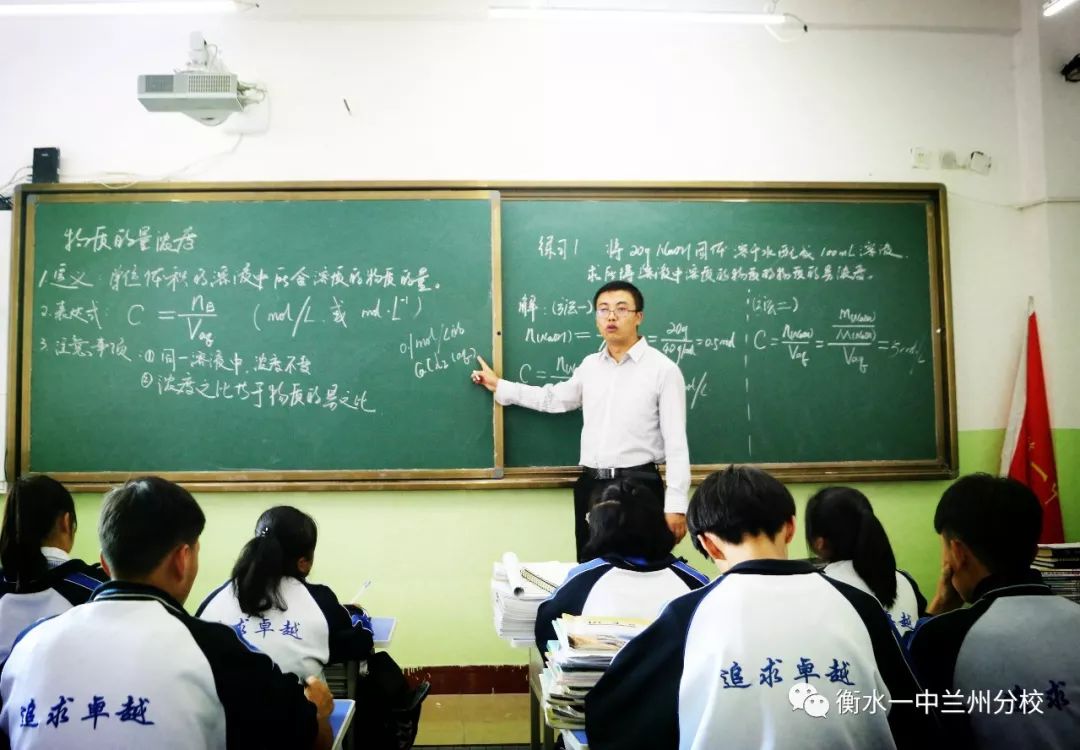 物质的量浓度
1.定义：单位体积的溶液中所含溶质的物质的量。
2.表达式：C = nB/Vaq (mol/L 或 mol·L⁻¹)
3.注意事项：①同一溶液中，浓度不变
②浓度之比等于物质的量之比
0.1mol/L
练习1 将20g NaOH固体溶于水配成100mL溶液，
求所得溶液中溶质的物质的物质的量浓度。
解：(方法一)
n(NaOH) =
= 20g/40g/mol = 0.5mol
C =
(方法二)
C = n(NaOH)/Vaq = m(NaOH)/M(NaOH)/Vaq = 5mol/L
追求卓越
追求卓越
追求卓越
衡水一中兰州分校